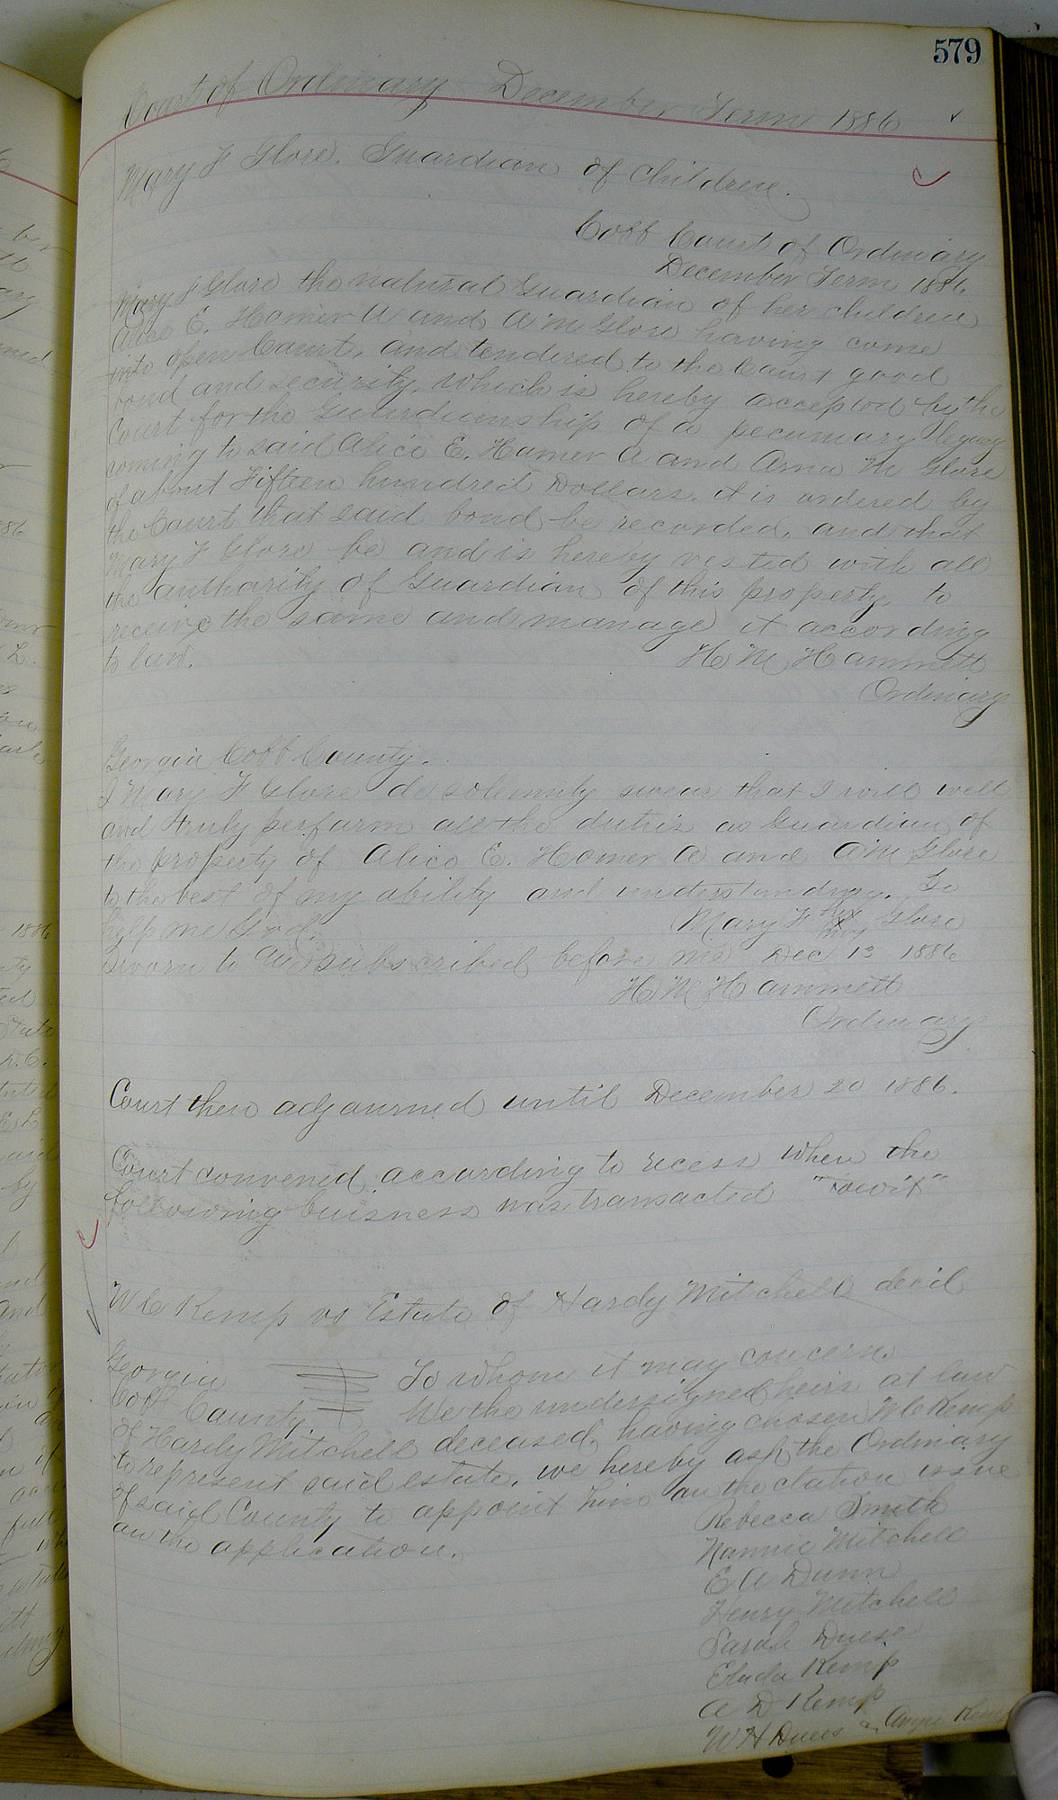 579
Court of Ordinary December Term 1886
Mary F Glore. Guardian of Children.
Cobb Court of Ordinary
December Term 1886
Mary F Glore the natural Guardian of her children
Alice E. Homer A and A M Glore having come
into open Court, and tendered to the Court good
bond and security, which is hereby accepted by the
Court for the Guardianship of a pecuniary legacy
coming to said Alice E. Homer A and Anna M Glore
of about Fifteen hundred Dollars. it is ordered by
the Court that said bond be recorded, and that
Mary F Glore be and is hereby vested with all
the authority of Guardian of this property, to
receive the same and manage it according
to law.
H M Hammett
Ordinary
Georgia Cobb County.
I Mary F Glore do solemnly swear that I will well
and truly perform all the duties as Guardian of
the property of Alice E. Homer A and A M Glore
to the best of my ability and understanding. So
help me God.
Mary F her x Glore
Sworn to and subscribed before me Dec 13 1886
H M Hammett
Ordinary
Court then adjourned until December 20 1886.
Court convened according to recess when the
following buisness was transacted "Towit"
W C Kemp vs Estate of Hardy Mitchell decd
Georgia To whom it may concern.
Cobb County We the undersigned heirs at law
of Hardy Mitchell deceased, having chosen W C Kemp
to represent said estate, we hereby ask the Ordinary
of said County to appoint him an the citation issue
an the application.
Rebecca Smith
Nannie Mitchell
E A Dunn
Henry Mitchell
Sarah
Kemp
A D Kemp
W H